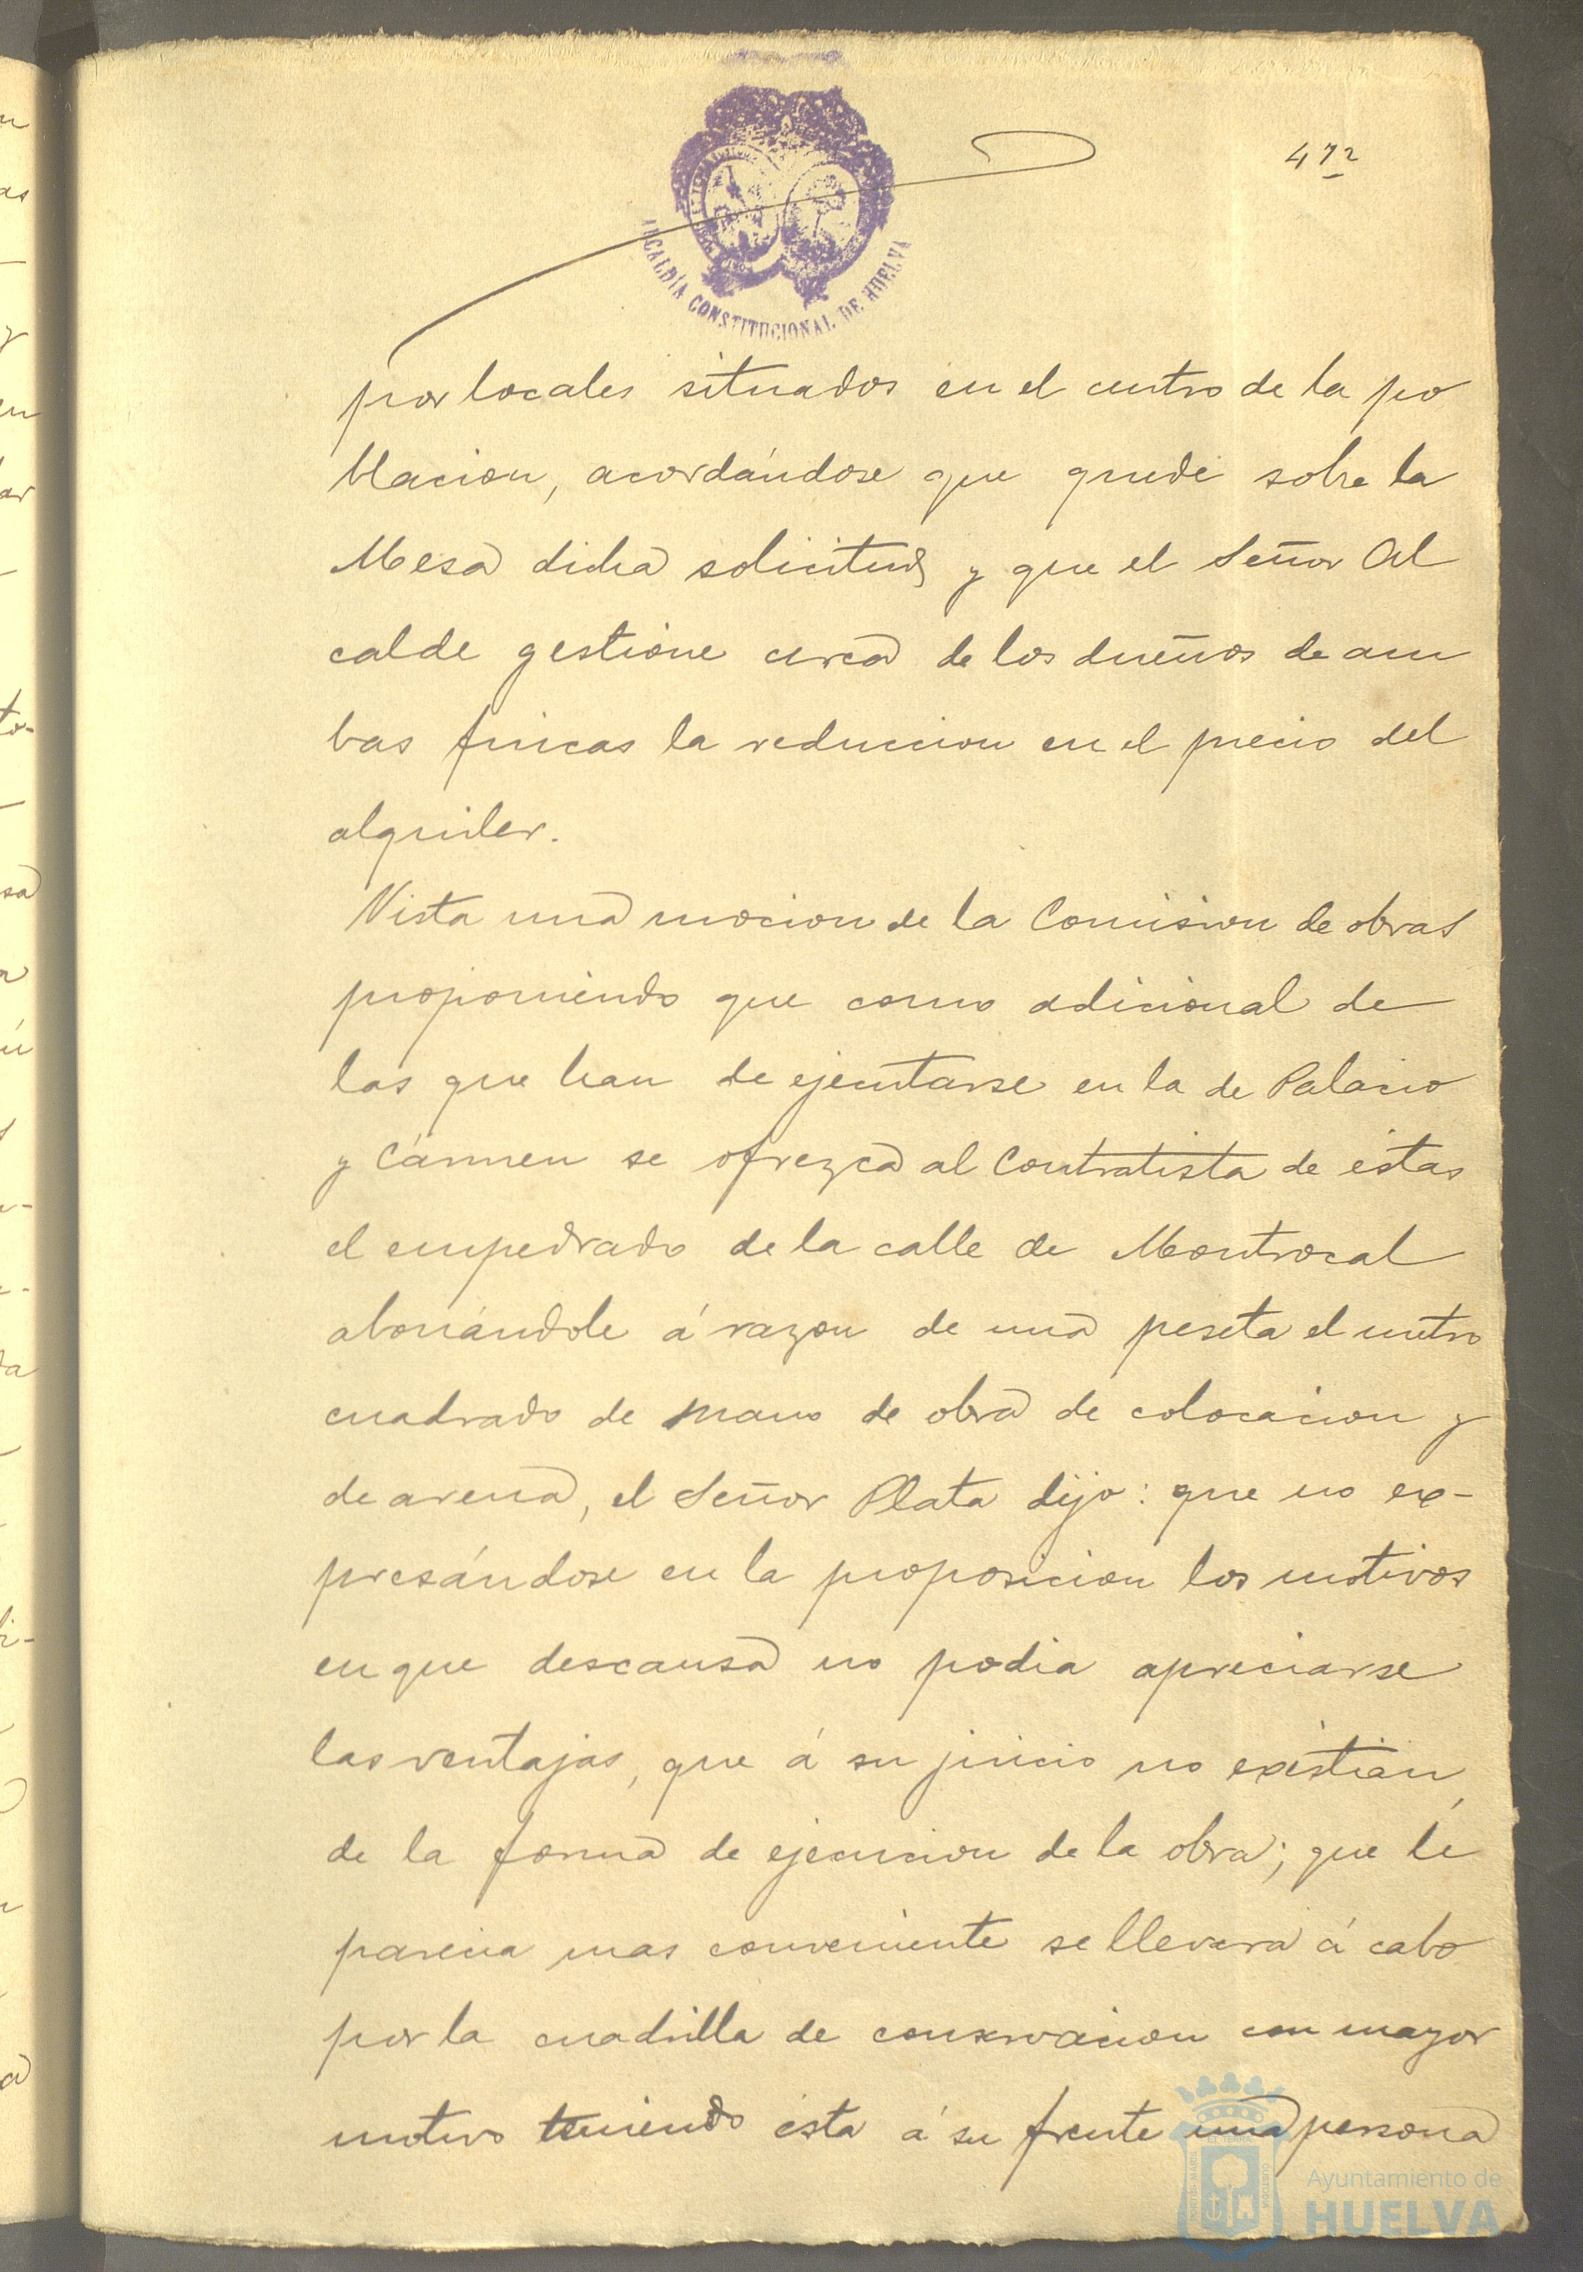 47
ALCALDÍA CONSTITUCIONAL DE HUELVA
por locales situados en el centro de la po
blacion, acordándose que quede sobre la
Mesa dicha solicitud y que el Señor Al
calde gestione cerca de los dueños de am
bas fincas la reduccion en el precio del
alquiler.
Vista una mocion de la Comision de obras
proponiendo que como adicional de
las que han de ejecutarse en la de Palacio
y Cármen se ofrezca al Contratista de éstas
el empedrado de la calle de Montrocal
abonándole á razon de una peseta el metro
cuadrado de mano de obra de colocacion y
de arena, el Señor Plata dijo: que no ex-
presándose en la proposicion los motivos
en que descansa no podia apreciarse
las ventajas, que á su juicio no existian,
de la forma de ejecucion de la obra; que le
parecia mas conveniente se llevara á cabo
por la cuadrilla de conservacion con mayor
motivo teniendo ésta á su frente una persona
Ayuntamiento de
HUELVA